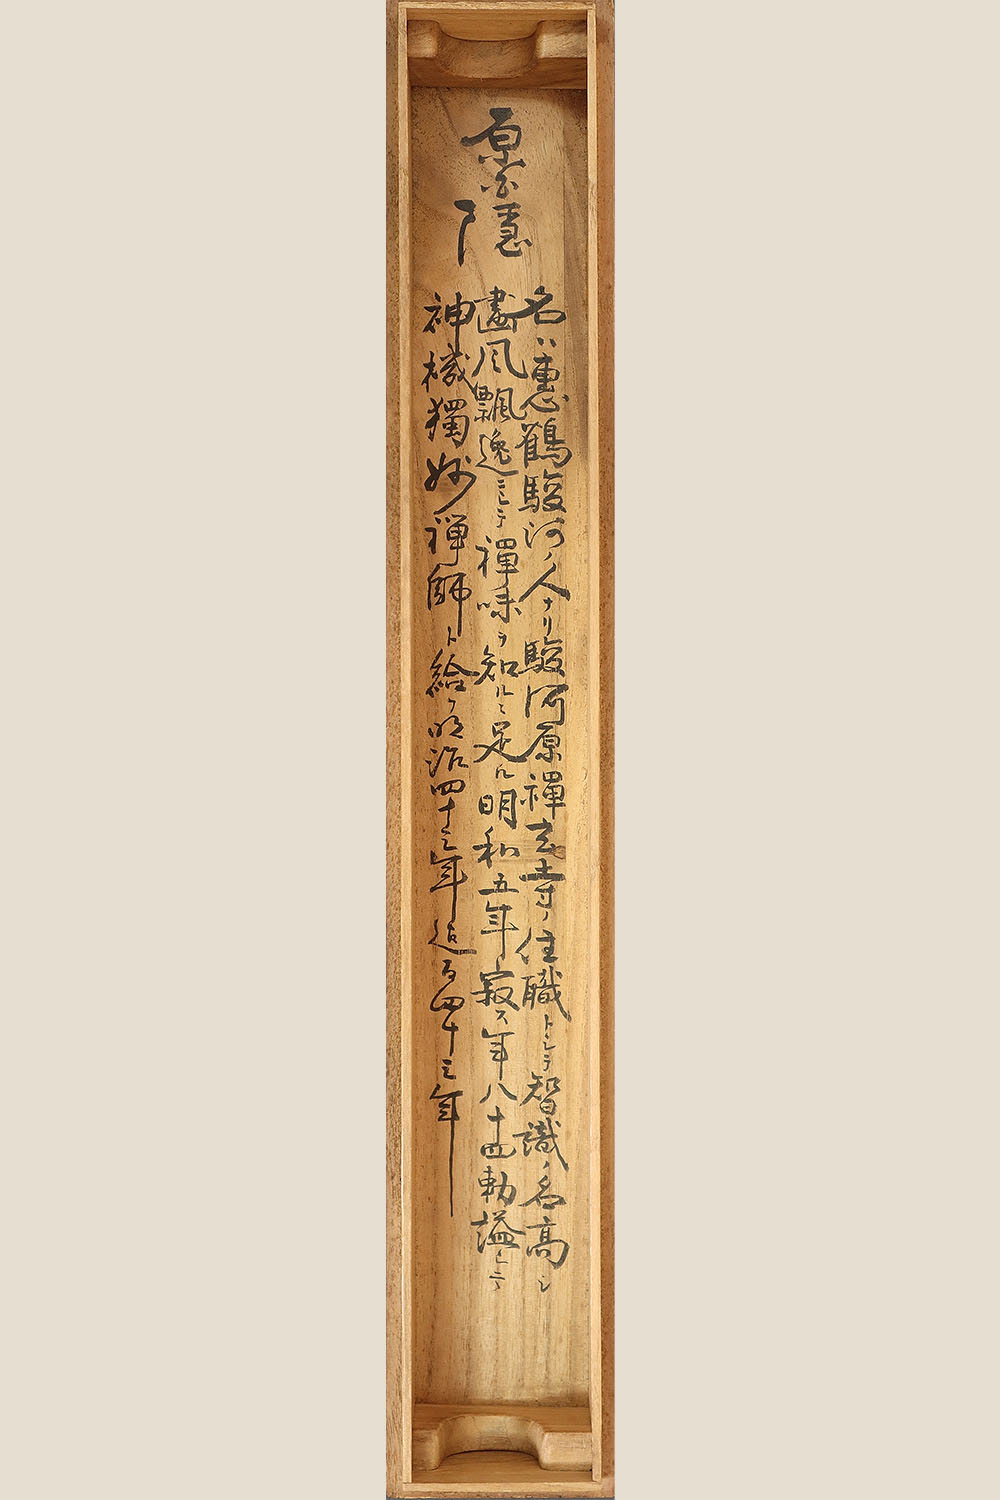 原白隠
名ハ惠鶴駿河ノ人ナリ駿河原禅玄寺ノ住職トシテ智識ノ名高シ
畵風飄逸ニシテ禪味ヲ知ルニ足ル明和五年寂ス年八十四勅謚シテ
神機獨妙禅師ト給フ明治四十三年追 四十三年